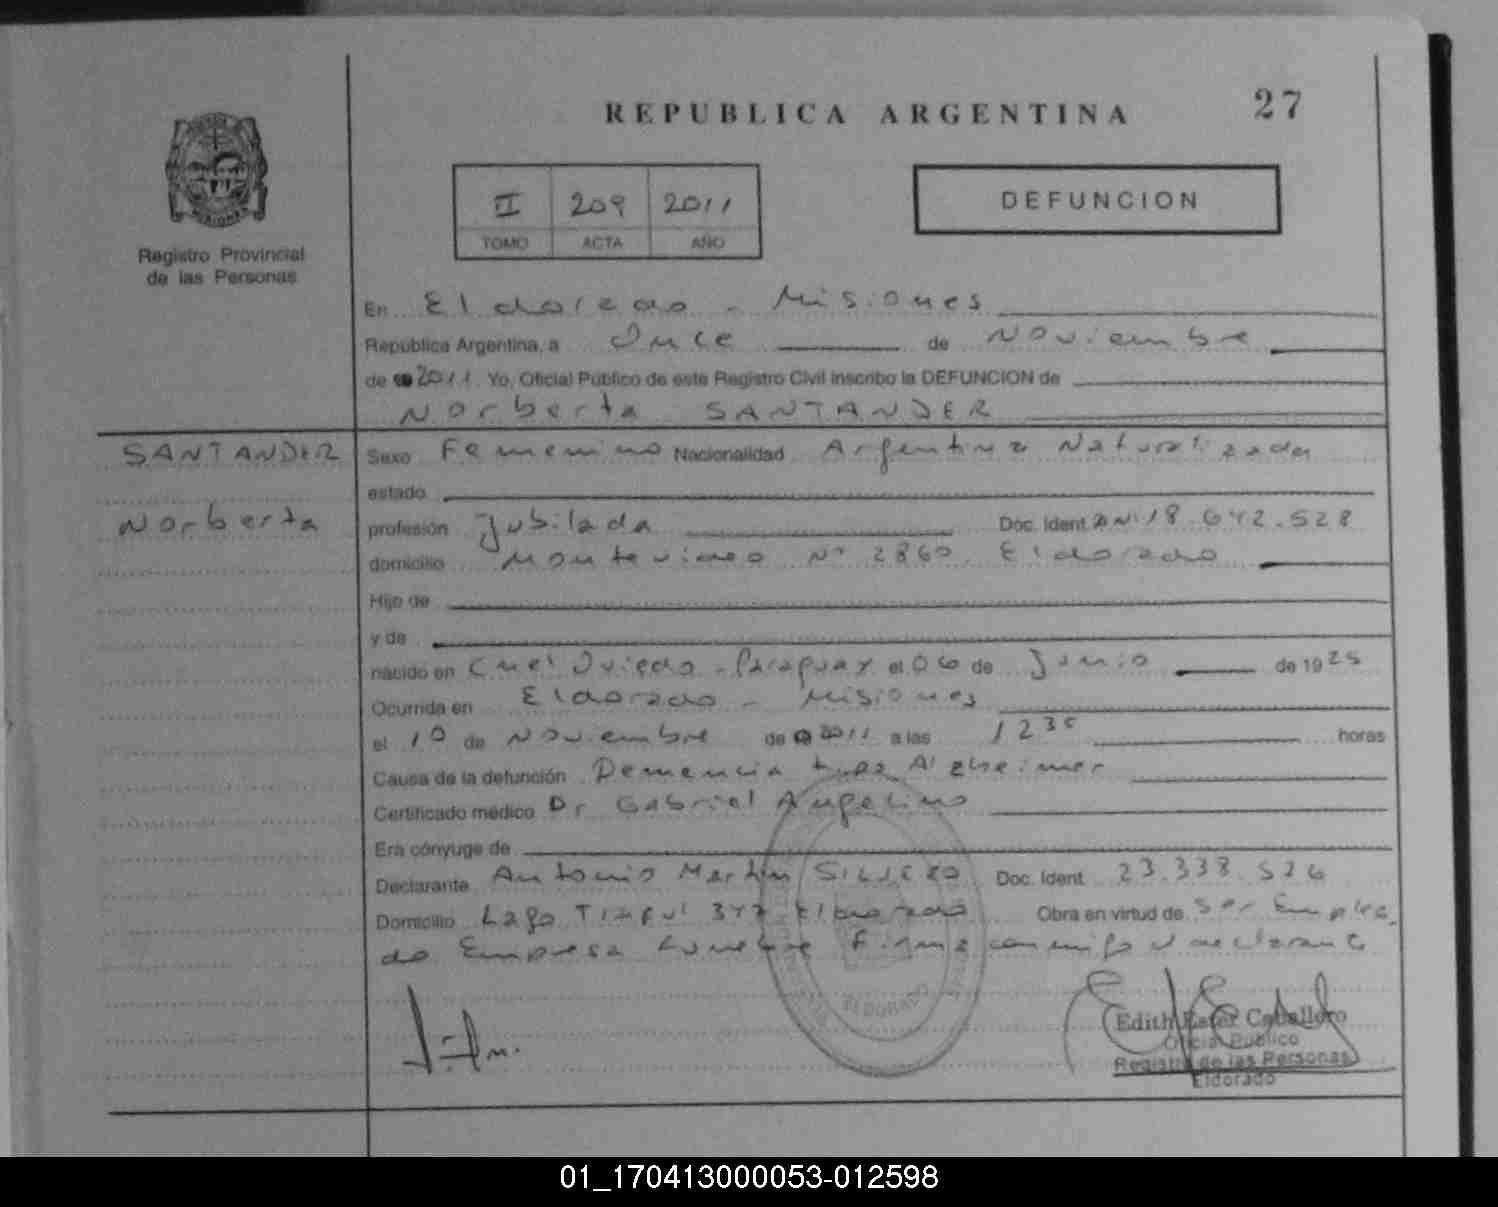 REPUBLICA ARGENTINA 27
II 209 2011
TOMO ACTA AÑO
DEFUNCION
Registro Provincial
de las Personas
En Eldorado - Misiones
República Argentina, a Once de Noviembre
de 2011 Yo, Oficial Público de este Registro Civil inscribo la DEFUNCION de
Norberta SANTANDER
SANTANDER
Norberta
Sexo Femenino Nacionalidad Argentina Naturalizada
estado
profesión Jubilada Doc. Ident. 18.642.528
domicilio Montevideo Nº 2860 Eldorado
Hijo de
y de
nacido en Cnel Oviedo - Paraguay el 06 de Junio de 1925
Ocurrida en Eldorado - Misiones
el 10 de Noviembre de 2011 a las 1230 horas
Causa de la defunción Demencia tipo Alzheimer
Certificado médico Dr Gabriel Angelino
Era cónyuge de
Declarante Antonio Martin SILVERO Doc. Ident. 23.338.526
Domicilio Lago 347 Eldorado Obra en virtud de Ser Emplea
do Empresa Funebre Firma conmigo el declarante
ELDORADO
Edith Ester Caballero
Oficial Público
Registro de las Personas
Eldorado
01_170413000053-012598